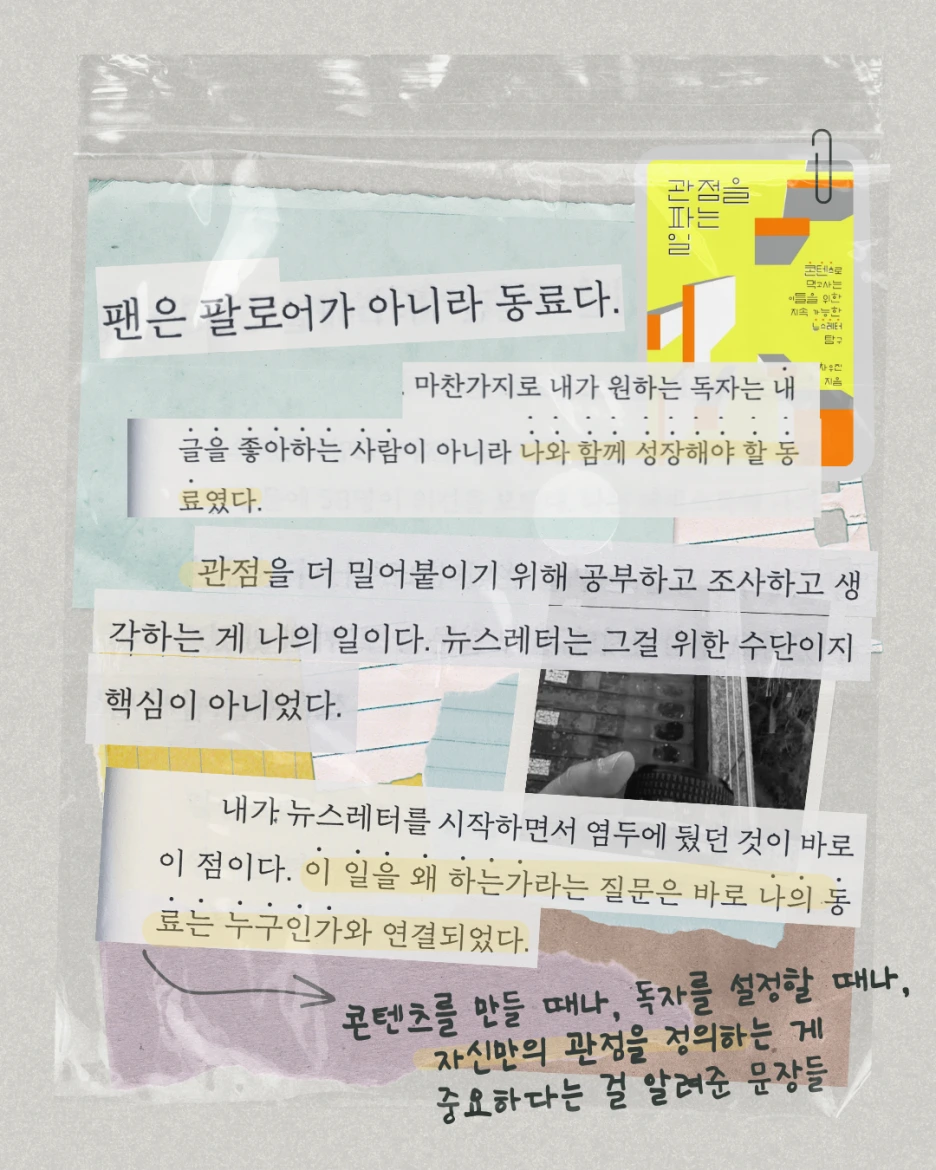 관점을
파는
일
콘텐츠로
먹고사는
이들을 위한
지속 가능한
뉴스레터
탐구
지음
팬은 팔로어가 아니라 동료다.
마찬가지로 내가 원하는 독자는 내
글을 좋아하는 사람이 아니라 나와 함께 성장해야 할 동
료였다.
관점을 더 밀어붙이기 위해 공부하고 조사하고 생
각하는 게 나의 일이다. 뉴스레터는 그걸 위한 수단이지
핵심이 아니었다.
내가 뉴스레터를 시작하면서 염두에 뒀던 것이 바로
이 점이다. 이 일을 왜 하는가라는 질문은 바로 나의 동
료는 누구인가와 연결되었다.
콘텐츠를 만들 때나, 독자를 설정할 때나,
자신만의 관점을 정의하는 게
중요하다는 걸 알려준 문장들